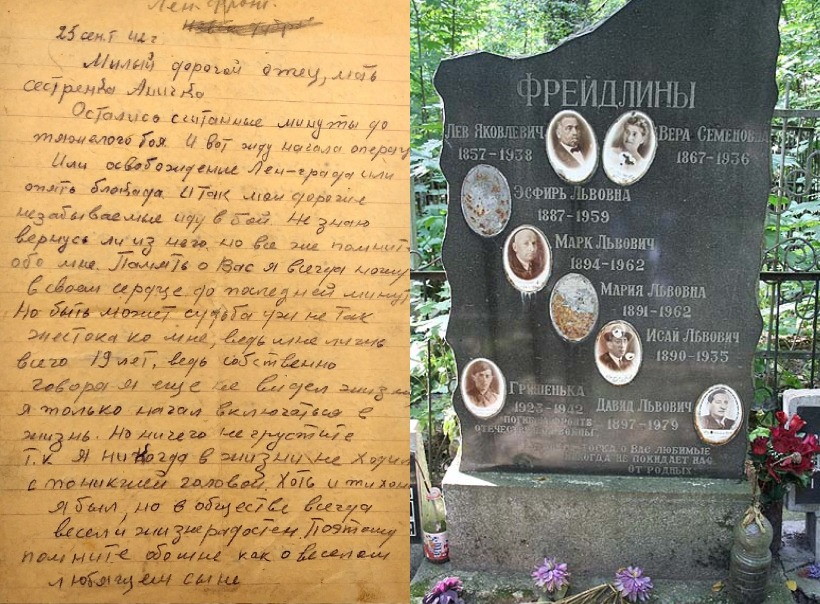 Лен. фронт.
25 сент 42 г
Милый дорогой отец, мать
сестренка Аничка
Остались считанные минуты до
тяжелого боя. И вот жду начала операц
Или освобождение Лен-града или
опять блокада. Итак мои дорогие
незабываемые иду в бой. Не знаю
вернусь ли из него, но все же помнит
обо мне. Память о Вас я всегда ношу
в своем сердце до последней минут
Но быть может судьба уж не так
жестока ко мне, ведь мне лишь
всего 19 лет, ведь собственно
говоря я еще не видел жизн
я только начал включаться в
жизнь. Но ничего не грустите
т.к я никогда в жизни не ходил
с поникшей головой. Хоть и тихон
я был, но в обществе всегда
весел и жизнерадостен. Поэтому
помните обо мне как о веселом
любящем сыне
ФРЕЙДЛИНЫ
ЛЕВ ЯКОВЛЕВИЧ
1857-1938
ВЕРА СЕМЕНОВНА
1867-1936
ЭСФИРЬ ЛЬВОВНА
1887-1959
МАРК ЛЬВОВИЧ
1894-1962
МАРИЯ ЛЬВОВНА
1891-1962
ИСАЙ ЛЬВОВИЧ
1890-1935
ГРИШЕНЬКА
1923-1942
ПОГИБ НА ФРОНТЕ
ОТЕЧЕСТВ ВОЙНЫ
ДАВИД ЛЬВОВИЧ
1897-1979
ТОСКА О ВАС ЛЮБИМЫЕ
НИКОГДА НЕ ПОКИДАЕТ НАС
ОТ РОДНЫХ